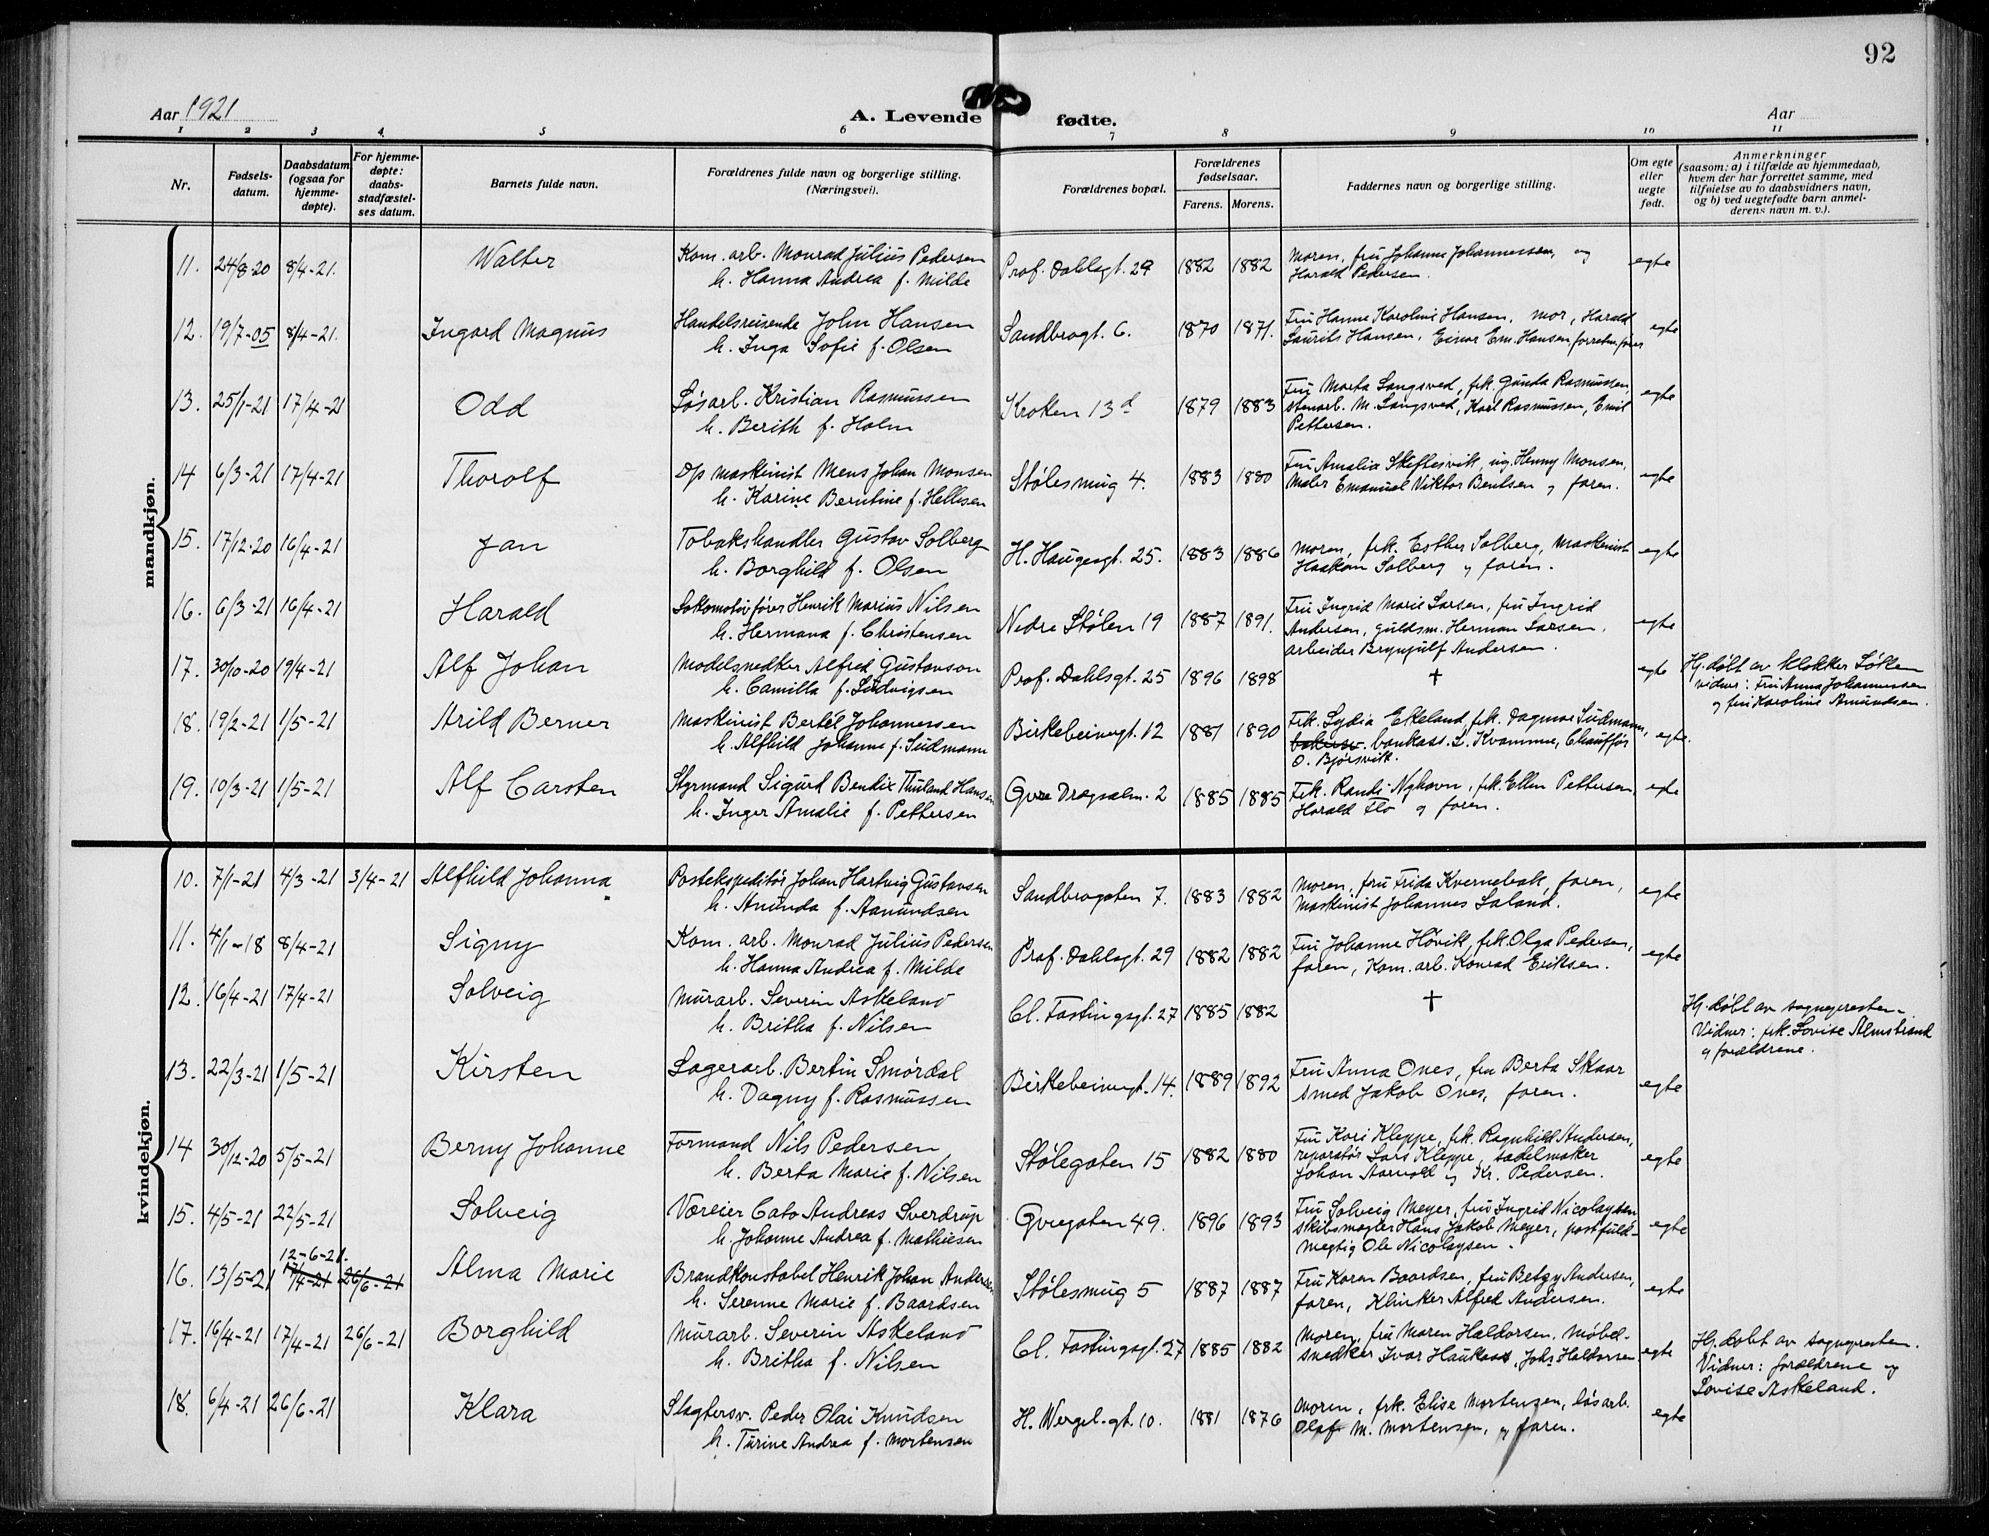 92
Aar 1921
A. Levende fødte.
Aar
1 2 3 4 5 6 7 8 9 10 11
Nr.
Fødsels-
datum.
Daabsdatum
(ogsaa for
hjemme-
døpte).
For hjemme-
døpte:
daabs-
stadfæstel-
ses datum.
Barnets fulde navn.
Forældrenes fulde navn og borgerlige stilling.
(Næringsvei).
Forældrenes bopæl.
Forældrenes
fødselsaar.
Farens. Morens.
Faddernes navn og borgerlige stilling.
Om egte
eller
uegte
født.
Anmerkninger
(saasom: a) i tilfælde av hjemmedaab,
hvem der har forrettet samme, med
tilføielse av to daabsvidners navn,
og b) ved uegtefødte barn anmel-
derens navn m. v.).
mandkjøn.
11. 24/8-20 8/4-21. Walter
Kom. arb. Monrad Julius Pedersen
h. Hanna Andrea f. Milde
Prof. Dahlsgt. 29 1882 1882
Moren, fru Johanne Johannessen, og
Harald Pedersen.
egte
12. 19/7-05 8/4-21. Ingard Magnus
Handelsreisende John Hansen
h. Inga Sofie f. Olsen
Sandbrogt. 6. 1870 1871.
Fru Hanne Karoline Hansen, mor, Harald
Laurits Hansen, Einar Em. Hansen, forretn.fører
egte
13. 25/1-21 17/4-21 Odd
Løsarb. Kristian Rasmussen
h. Berith f. Holm
Kroken 13d 1879 1883
Fru Marta Langsved, frk. Gunda Rasmussen,
stenarb. M. Langsved, Karl Rasmussen, Emil
Pettersen.
egte
14 6/3-21 17/4-21 Thorolf
D/p maskinist Mens Johan Monsen
h. Karine Berntine f. Hellesen
Stølesmug 4. 1883 1880
Fru Amalia Skeftesvik, ug. Henny Monsen,
Maler Emanuel Viktor Bentsen og faren.
egte
15. 17/12-20 16/4-21 Jan
Tobakshandler Gustav Solberg
h. Borghild f. Olsen
H. Haugesgt. 25. 1883 1886
Moren, frk. Esther Solberg, Maskinist
Haakon Solberg og faren.
egte
16. 6/3-21 16/4-21 Harald
Lokomotivfører Henrik Marius Nilsen
h. Hermana f. Christensen
Nedre Stølen 19 1887 1891.
Fru Ingrid Marie Larsen, fru Ingrid
Andersen, guldsm. Herman Larsen,
arbeider Brynjulf Andersen.
egte
17. 30/10-20 19/4-21 Alf Johan
Modelsnedker Alfred Gustavson
h. Camilla f. Ludvigsen
Prof. Dahlsgt. 25 1896 1898
†
egte
Hj. døbt av klokker Løken
vidner: Fru Anna Johannessen
og fru Karoline Amundsen.
18. 19/2-21 1/5-21 Arild Berner
Maskinist Bertel Johannessen
h. Alfhild Johanne f. Sudmann
Birkebeinergt. 12 1881 1890
Frk. Lydia Ekeland, frk. Dagmar Sudmann,
bankass. L. Kvamme, Chauffør
O. Bjørsvik.
egte.
19. 10/3-21 1/5-21 Alf Carsten
Styrmand Sigurd Bendix Thuland Hansen
h. Inger Amalie f. Pettersen
Øvre Dregsalm. 2 1885 1885
Frk. Randi Nyhavn, frk. Ellen Pettersen,
Harald Flo og faren.
egte
kvindekjøn.
10. 7/1-21 4/3-21 3/4-21 Alfhild Johanna
Postekspeditør Johan Hartvig Gustavsen
h. Amunda f. Aamundsen
Sandbrogaten 7. 1883 1882
Moren, fru Frida Kvernebak, faren,
Maskinist Johannes Laland.
egte
11. 4/1-18 8/4-21 Signy
Kom. arb. Monrad Julius Pedersen
h. Hanna Andrea f. Milde
Prof. Dahlsgt. 29 1882 1882
Fru Johanne Høvik, frk. Olga Pedersen,
faren, Kom. arb. Konrad Eriksen.
egte
12. 16/4-21 17/4-21 Solveig
Murarb. Severin Askeland
h. Britha f. Nilsen
Cl. Fastingsgt. 27 1885 1882
†
Hj. døbt av sognepresten.
Vidner: frk. Lovise Almstrand
og forældrene.
13. 22/3-21 1/5-21 Kirsten
Lagerarb. Bertin Smørdal
h. Dagny f. Rasmussen
Birkebeinergt. 14. 1889 1892
Fru Anna Ones, fru Berta Skaar
Smed Jakob Ones, faren.
egte
14 30/12-20 5/5-21 Berny Johanne
Formand Nils Pedersen
h. Berta Marie f. Nilsen
Stølegaten 15 1882 1880
Fru Kari Kleppe, frk. Ragnhild Andersen,
reparatør Lars Kleppe, sadelmaker
Johan Aarvold og Kr. Pedersen.
egte
15. 4/5-21 22/5-21 Solveig
Væreier Cato Andreas Sverdrup
h. Johanne Andrea f. Mathiesen
Øvregaten 49. 1896 1893
Fru Solveig Meyer, fru Ingrid Nicolaysen
skibsmægler Hans Jakob Meyer, postfuld-
mægtig Ole Nicolaysen.
egte
12-6-21.
16. 13/5-21 17/4-21 26/6-21 Alma Marie
Brandkonstabel Henrik Johan Andersen
h. Serenne Marie f. Baardsen
Stølesmug 5 1887 1887
Fru Karen Baardsen, fru Betzy Andersen,
faren, Klinker Alfred Andersen.
egte
17. 16/4-21 17/4-21 26/6-21 Borghild
Murarb. Severin Askeland
h. Britha f. Nilsen
Cl. Fastingsgt. 27 1885 1882
Moren, fru Maren Haldorsen, møbel-
snedker Ivar Haukaas, Johs. Haldorsen
egte
Hj. døbt av sognepresten.
Vidner: forældrene og
Lovise Askeland.
18. 6/4-21 26/6-21 Klara
Slagtersv. Peder Olai Knudsen
h. Turine Andrea f. Mortensen
H. Wergel.gt. 10. 1881 1876
Moren, frk. Elise Mortensen, løsarb.
Olaf M. Mortensen, og faren.
egte